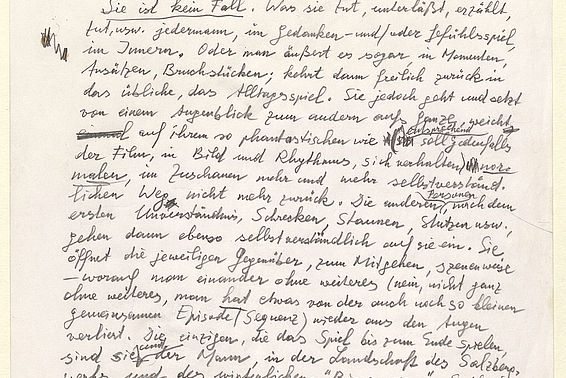 Sie ist kein Fall. Was sie tut, unterläßt, erzählt,
tut, usw. jedermann, in Gedanken- und/oder Gefühlsspiel,
im Innern. Oder man äußert es sogar, in Momenten,
Ansätzen, Bruchstücken; kehrt dann freilich zurück in
das übliche, das Alltagsspiel. Sie jedoch geht und setzt
von einem Augenblick zum andern aufs Ganze, weicht
auf ihrem so phantastischen wie
entsprechend soll jedenfalls
der Film, in Bild und Rhythmus, sich verhalten) nor-
malen, im Zuschauen mehr und mehr selbstverständ-
lichen Weg nicht mehr zurück. Die anderen Personen, nach dem
ersten Unverständnis, Schrecken, Staunen, Stutzen usw.,
gehen dann ebenso selbstverständlich auf sie ein. Sie
öffnet die jeweiligen Gegenüber, zum Mitgehen, szenenweise
– worauf man einander ohne weiteres (nein, nicht ganz
ohne weiteres, man hat etwas von der auch noch so kleinen
gemeinsamen Episode/Sequenz) wieder aus den Augen
verliert. Die einzigen, die das Spiel bis zum Ende spielen,
sind sie und der Mann, in der Landschaft des Salzberg-
werks und des winterlichen